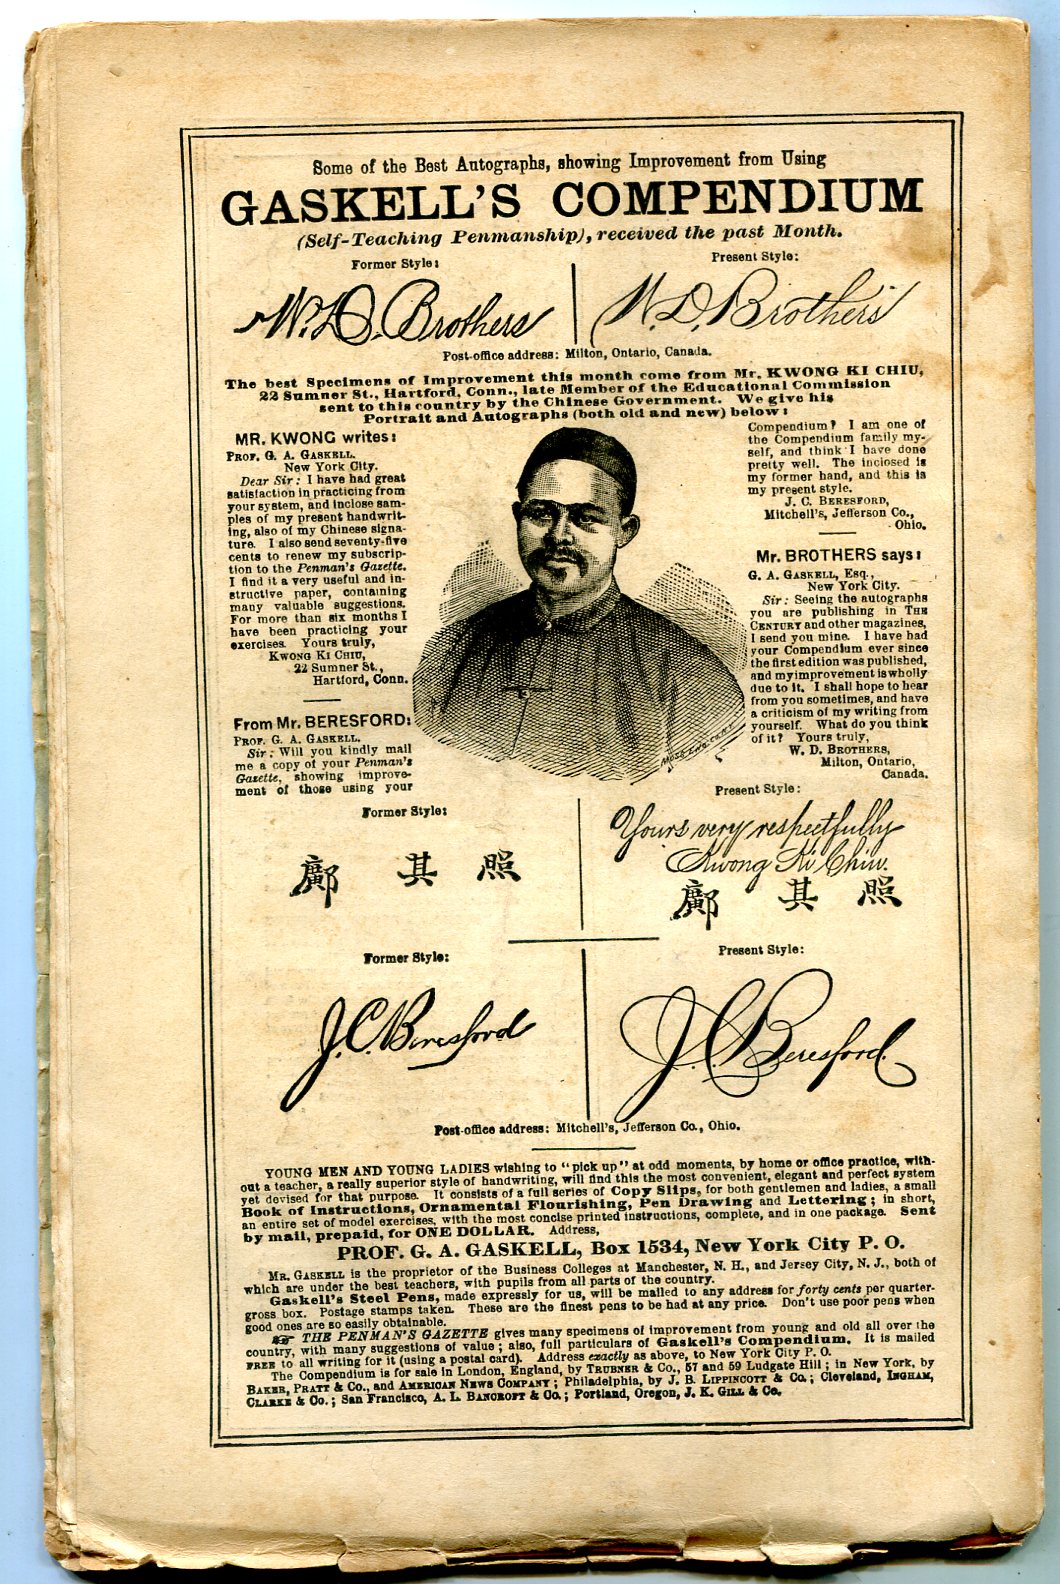 Some of the Best Autographs, showing Improvement from Using
GASKELL'S COMPENDIUM
(Self-Teaching Penmanship), received the past Month.
Former Style:
Present Style:
W. D. Brothers
W. D. Brothers
Post-office address: Milton, Ontario, Canada.
The best Specimens of Improvement this month come from Mr. KWONG KI CHIU,
22 Sumner St., Hartford, Conn., late Member of the Educational Commission
sent to this country by the Chinese Government. We give his
Portrait and Autographs (both old and new) below:
MR. KWONG writes:
PROF. G. A. GASKELL.
New York City.
Dear Sir: I have had great
satisfaction in practicing from
your system, and inclose sam-
ples of my present handwrit-
ing, also of my Chinese signa-
ture. I also send seventy-five
cents to renew my subscrip-
tion to the Penman's Gazette.
I find it a very useful and in-
structive paper, containing
many valuable suggestions.
For more than six months I
have been practicing your
exercises. Yours truly,
KWONG KI CHIU,
22 Sumner St.,
Hartford, Conn.
From Mr. BERESFORD:
PROF. G. A. GASKELL.
Sir: Will you kindly mail
me a copy of your Penman's
Gazette, showing improve-
ment of those using your
Compendium? I am one of
the Compendium family my-
self, and think I have done
pretty well. The inclosed is
my former hand, and this is
my present style.
J. C. BERESFORD,
Mitchell's, Jefferson Co.,
Ohio.
Mr. BROTHERS says:
G. A. GASKELL, Esq.,
New York City.
Sir: Seeing the autographs
you are publishing in THE
CENTURY and other magazines,
I send you mine. I have had
your Compendium ever since
the first edition was published,
and my improvement is wholly
due to it. I shall hope to hear
from you sometimes, and have
a criticism of my writing from
yourself. What do you think
of it? Yours truly,
W. D. BROTHERS,
Milton, Ontario,
Canada.
Former Style:
Present Style:
鄺 其 照
Yours very respectfully
Kwong Ki Chiu.
鄺 其 照
Former Style:
Present Style:
J. C. Beresford
J. C. Beresford.
Post-office address: Mitchell's, Jefferson Co., Ohio.
YOUNG MEN AND YOUNG LADIES wishing to "pick up" at odd moments, by home or office practice, with-
out a teacher, a really superior style of handwriting, will find this the most convenient, elegant and perfect system
yet devised for that purpose. It consists of a full series of Copy Slips, for both gentlemen and ladies, a small
Book of Instructions, Ornamental Flourishing, Pen Drawing and Lettering; in short,
an entire set of model exercises, with the most concise printed instructions, complete, and in one package. Sent
by mail, prepaid, for ONE DOLLAR. Address,
PROF. G. A. GASKELL, Box 1534, New York City P. O.
MR. GASKELL is the proprietor of the Business Colleges at Manchester, N. H., and Jersey City, N. J., both of
which are under the best teachers, with pupils from all parts of the country.
Gaskell's Steel Pens, made expressly for us, will be mailed to any address for forty cents per quarter-
gross box. Postage stamps taken. These are the finest pens to be had at any price. Don't use poor pens when
good ones are so easily obtainable.
☞ THE PENMAN'S GAZETTE gives many specimens of improvement from young and old all over the
country, with many suggestions of value; also, full particulars of Gaskell's Compendium. It is mailed
FREE to all writing for it (using a postal card). Address exactly as above, to New York City P. O.
The Compendium is for sale in London, England, by TRUBNER & Co., 57 and 59 Ludgate Hill; in New York, by
BAKER, PRATT & Co., and AMERICAN NEWS COMPANY; Philadelphia, by J. B. LIPPINCOTT & Co.; Cleveland, INGHAM,
CLARKE & Co.; San Francisco, A. L. BANCROFT & Co.; Portland, Oregon, J. K. GILL & Co.